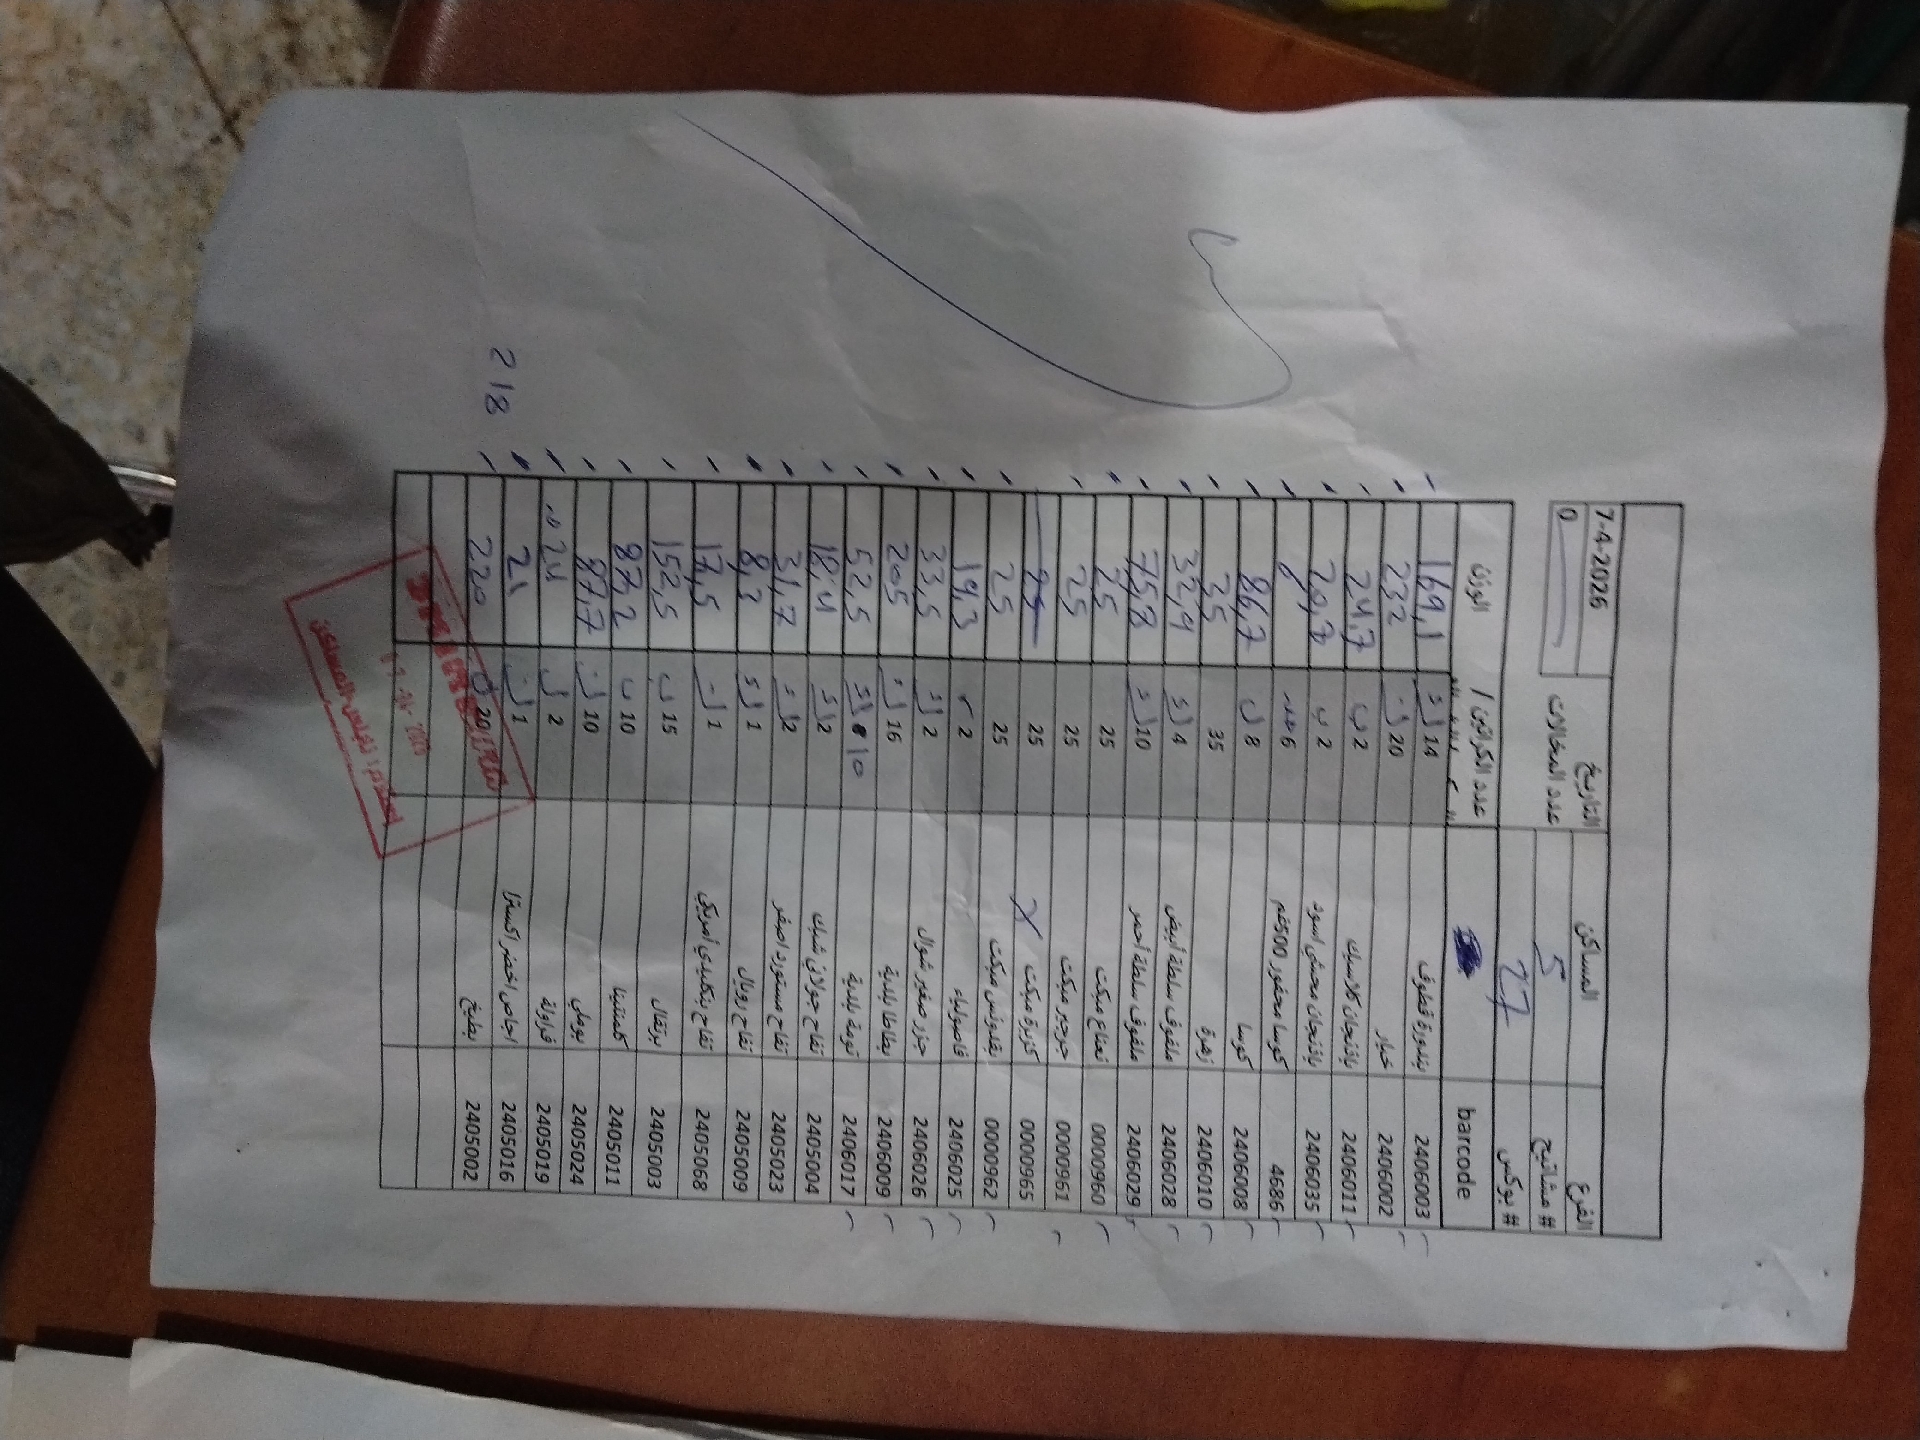 الفرع المساكن التاريخ 7-4-2026
# مشاتيح 5 عدد المخالات 0
# بوكس 27
barcode عدد الكراتين / الوزن
2406003 بندورة قطوف 14 169,1
2406002 خيار 20 232
2406011 باذنجان كلاسيك 2 24,7
2406035 باذنجان محشي اسود 2 20,8
4686 كوسا محفور 500غم 6 6
2406008 كوسا 8 86,7
2406010 زهرة 35 35
2406028 ملفوف سلطة أبيض 4 32,9
2406029 ملفوف سلطة أحمر 10 75,8
0000960 نعناع مبكت 25 25
0000961 جرجير مبكت 25 25
0000965 كزبرة مبكت X 25
0000962 بقدونس مبكت 25 25
2406025 فاصولياء 2 19,3
2406026 جزر صغير شوال 2 33,5
2406009 بطاطا بلدية 16 205
2406017 ثومة بلدية 10 52,5
2405004 تفاح جولاني شبك 2 18,4
2405023 تفاح مستورد اصفر 2 31,7
2405009 تفاح رويال 1 8,2
2405068 تفاح بنكليدي أمريكي 1 17,5
2405003 برتقال 15 152,5
2405011 كلمنتينا 10 87,2
2405024 بوملي 10 87,7
2405019 فراولة 2 24
2405016 اجاص اخضر اكسترا 1 21
2405002 بطيخ 20 220
218